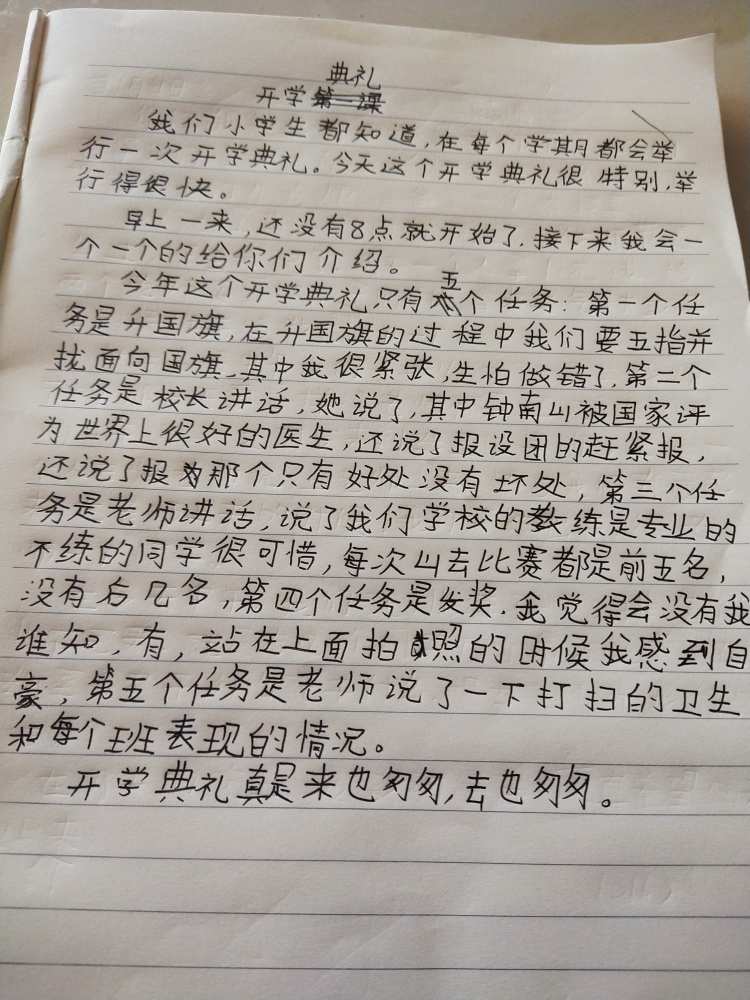 开学典礼
我们小学生都知道,在每个学期都会举
行一次开学典礼。今天这个开学典礼很特别,举
行得很快。
早上一来,还没有8点就开始了,接下来我会一
个一个的给你们介绍。
今年这个开学典礼只有五个任务:第一个任
务是升国旗,在升国旗的过程中我们要五指并
拢面向国旗,其中我很紧张,生怕做错了,第二个
任务是校长讲话,她说了,其中钟南山被国家评
为世界上很好的医生,还说了报设团的赶紧报,
还说了报为那个只有好处没有坏处,第三个任
务是老师讲话,说了我们学校的教练是专业的
不练的同学很可惜,每次出去比赛都是前五名,
没有后几名,第四个任务是发奖.我觉得会没有我
谁知,有,站在上面拍照的时候我感到自
豪,第五个任务是老师说了一下打扫的卫生
和每个班表现的情况。
开学典礼真是来也匆匆,去也匆匆。